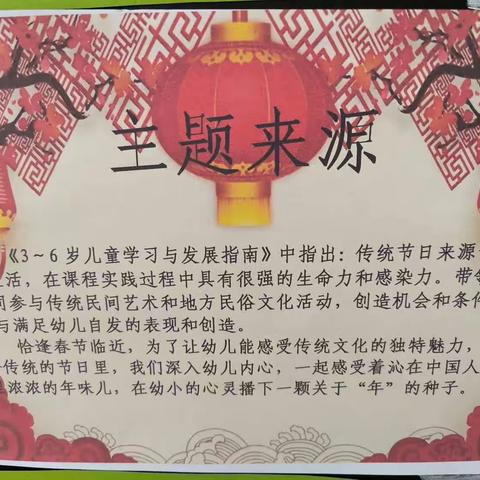 主题来源
《3～6岁儿童学习与发展指南》中指出：传统节日来源
活，在课程实践过程中具有很强的生命力和感染力。带
同参与传统民间艺术和地方民俗文化活动，创造机会和条
与满足幼儿自发的表现和创造。
恰逢春节临近，为了让幼儿能感受传统文化的独特魅力，
传统的节日里，我们深入幼儿内心，一起感受着沁在中国人
浓浓的年味儿，在幼小的心灵播下一颗关于“年”的种子。